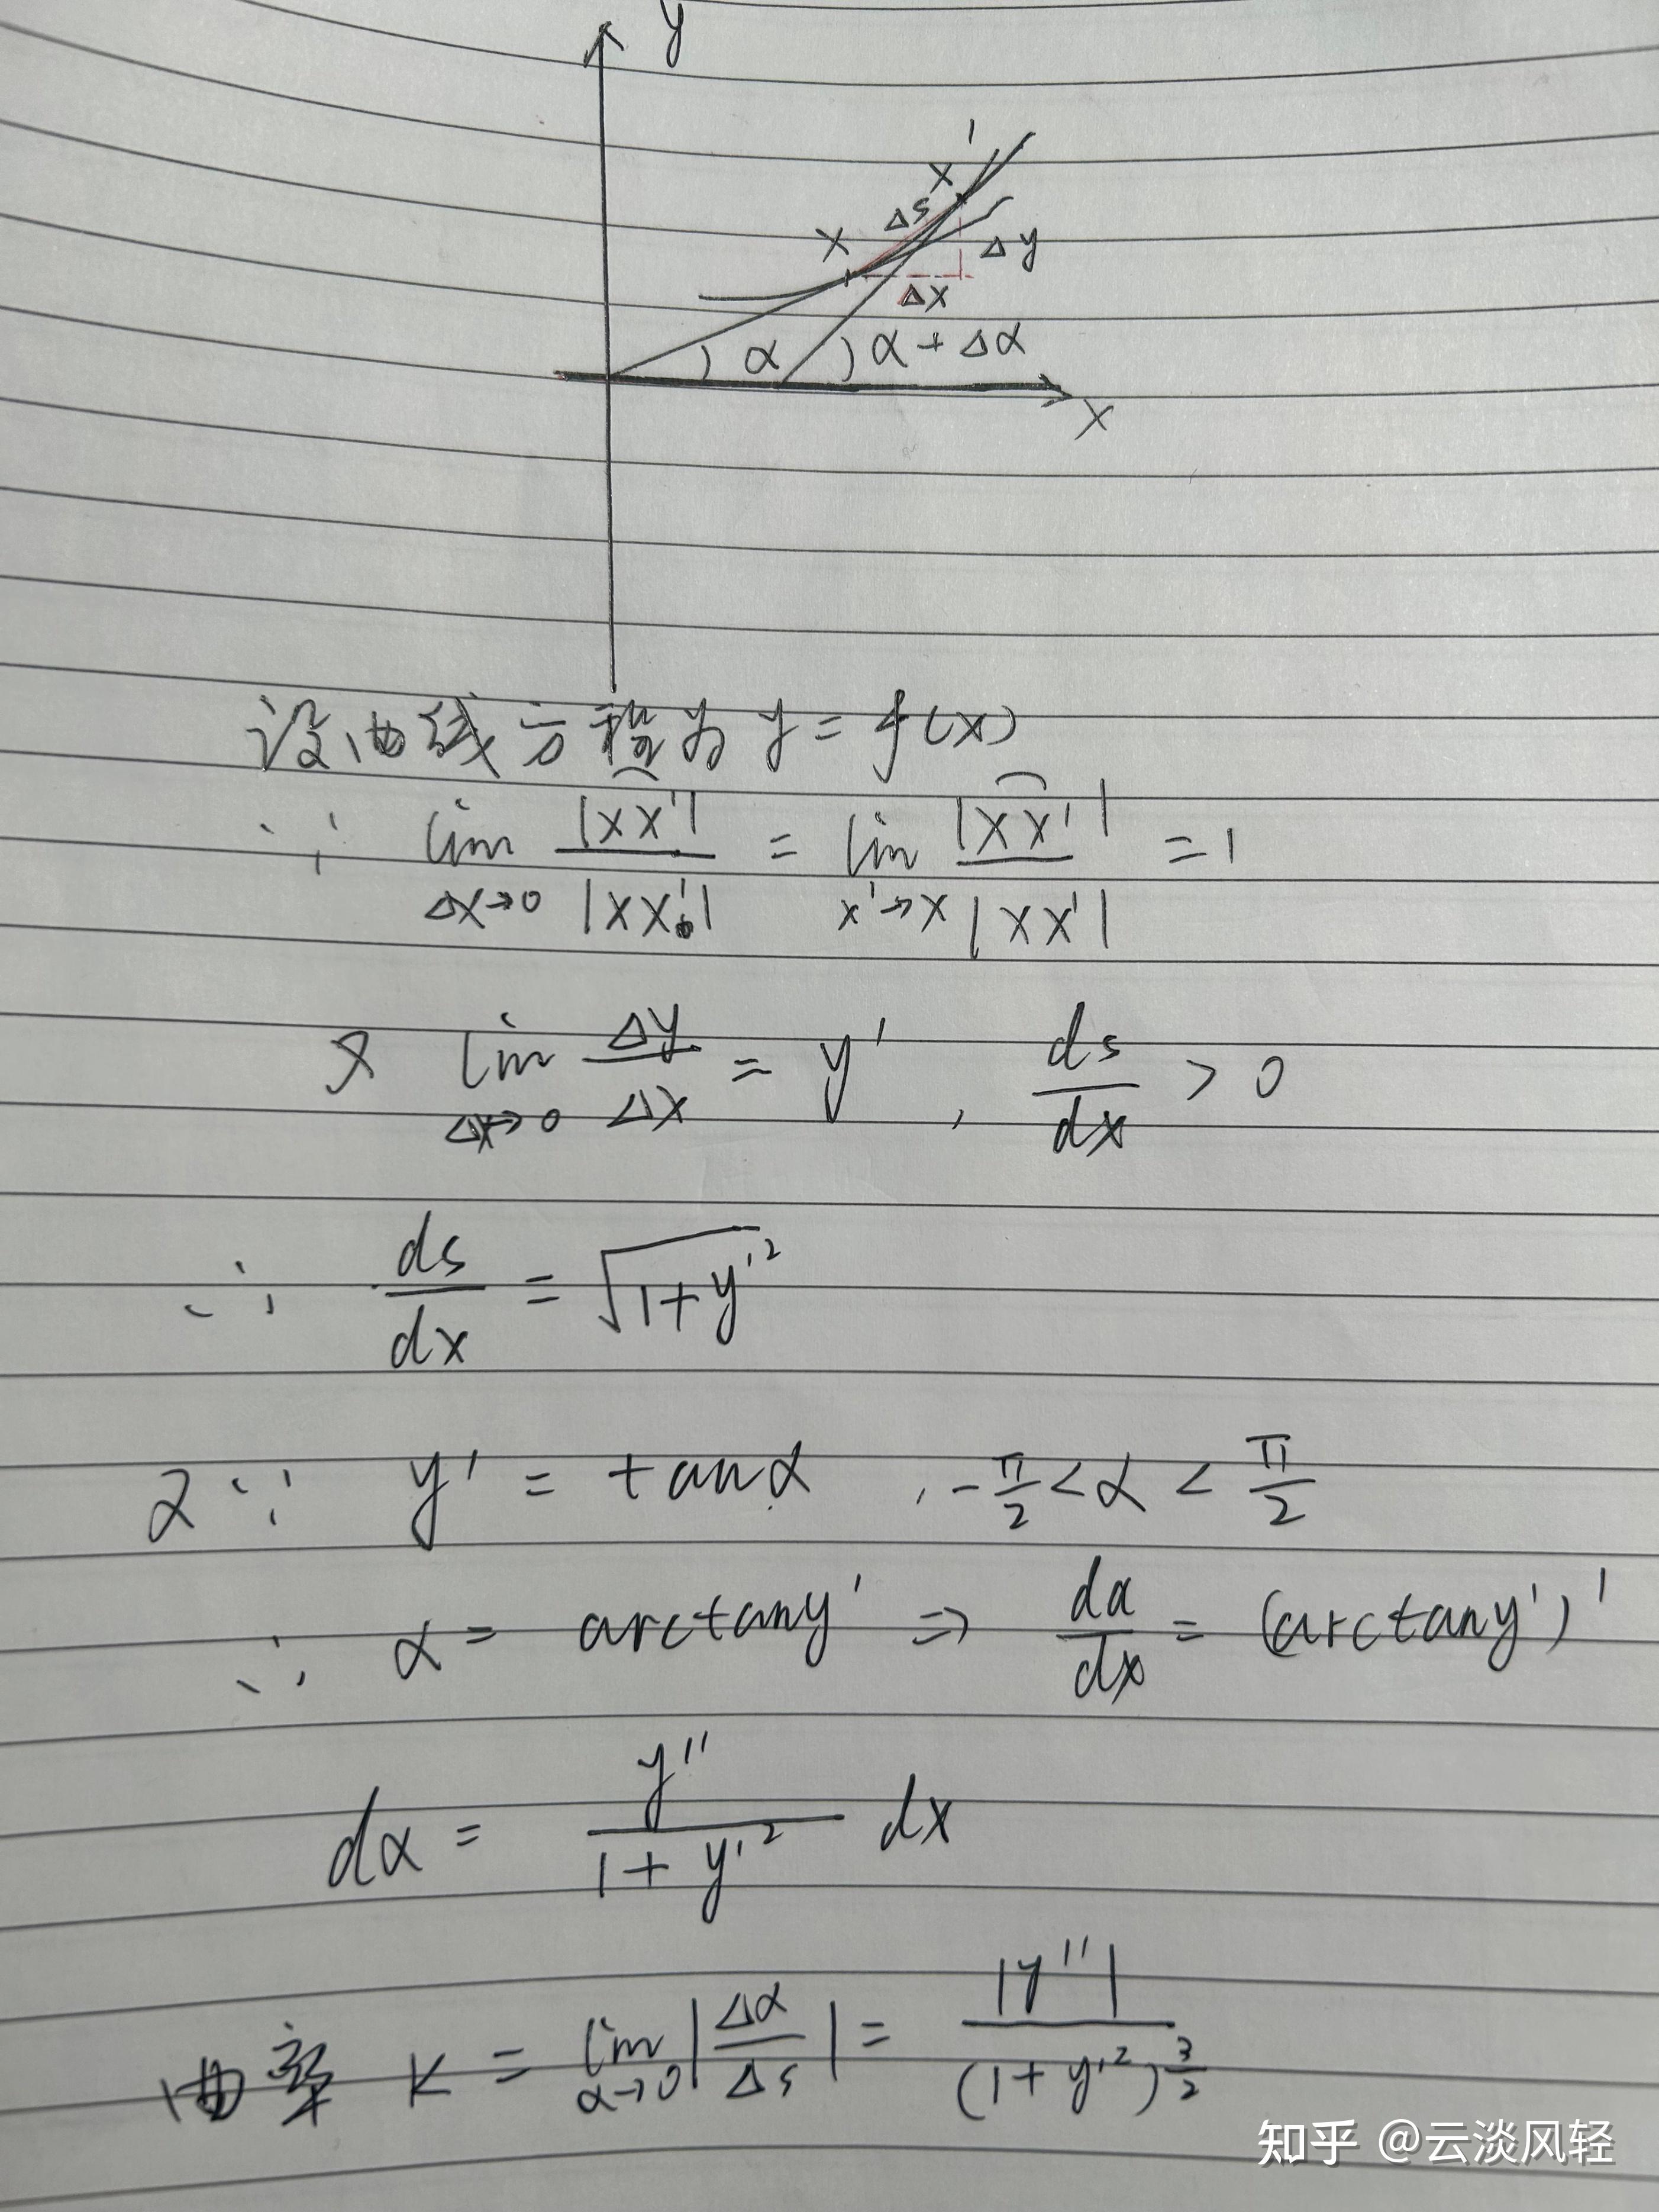 y
x'
Δs
x
Δy
Δx
α
α + Δα
x
设曲线方程为 y = f(x)
∵ lim_{Δx→0} |⌒xx'| / |xx'| = lim_{x'→x} |⌒xx'| / |xx'| = 1
又 lim_{Δx→0} Δy/Δx = y' , ds/dx > 0
∴ ds/dx = √(1+y'²)
又∵ y' = tanα , -π/2 < α < π/2
∴ α = arctany' ⇒ dα/dx = (arctany')'
dα = y''/(1+y'²) dx
曲率 K = lim_{α→0} |Δα/Δs| = |y''| / (1+y'²)^{3/2}
知乎 @云淡风轻